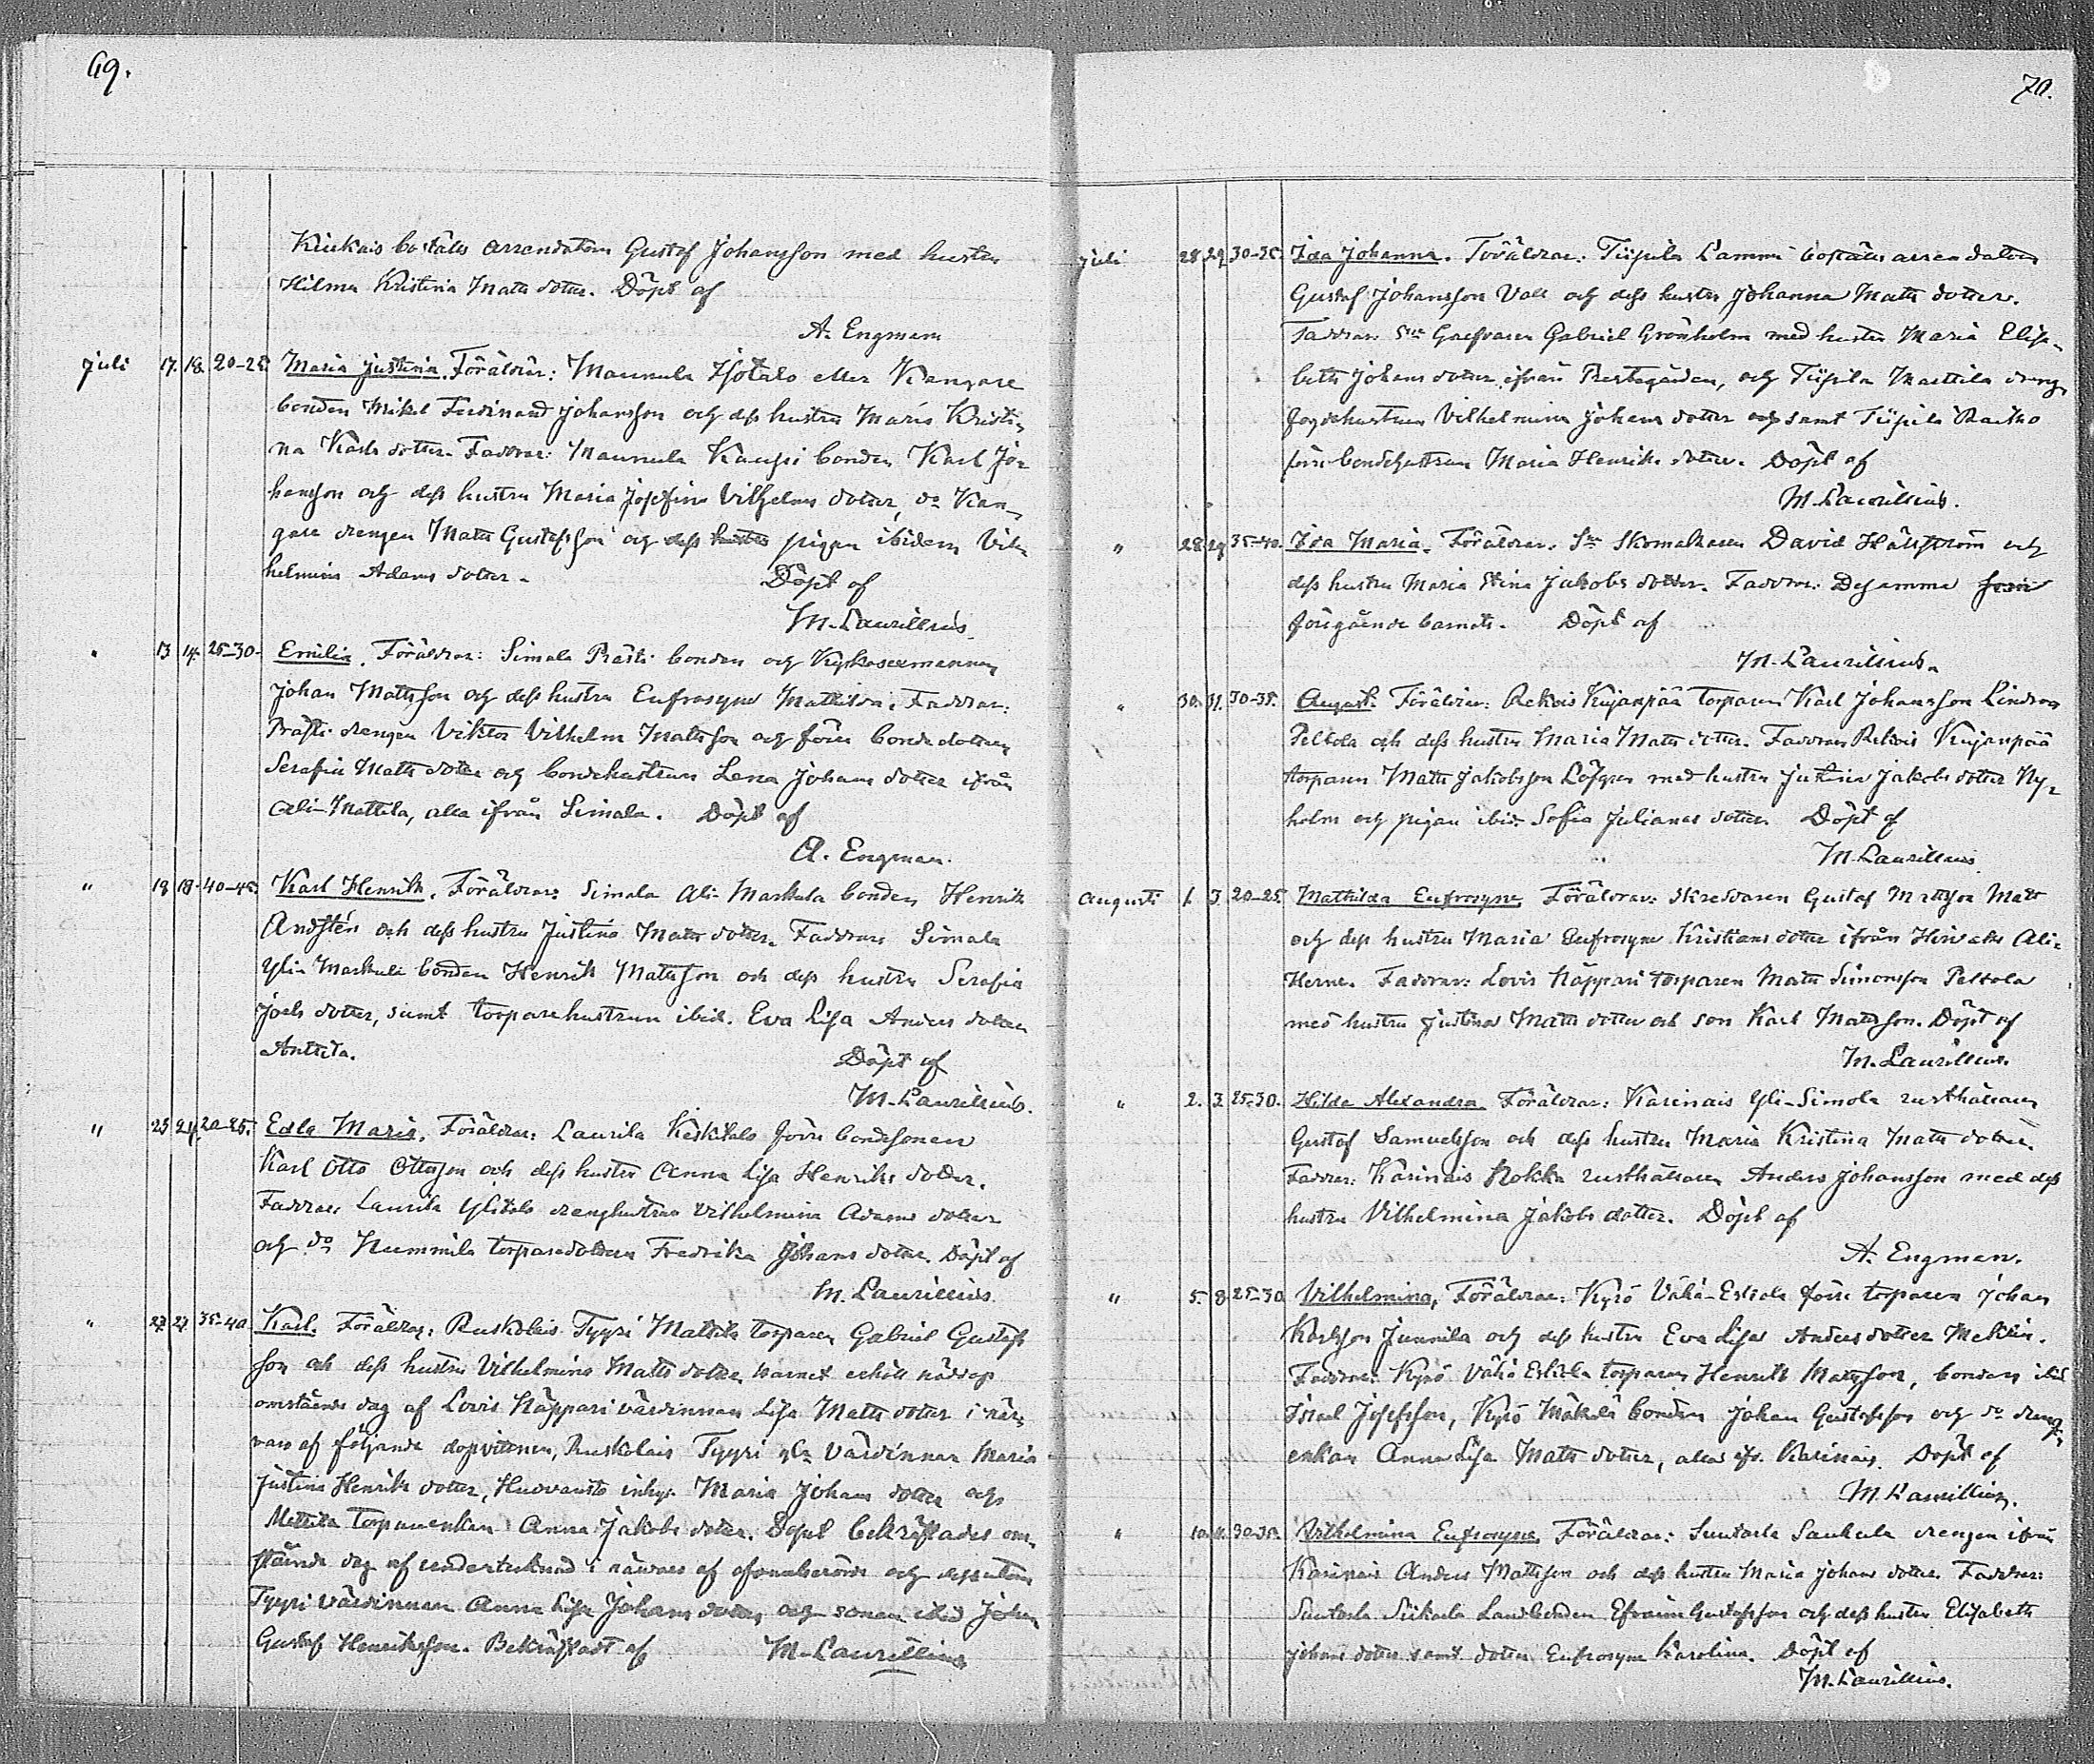 69.
Kiukais boställs arrendatorn Gustaf Johansson med hustru
Hilma Kristina Matts dotter. Döpt af
A. Engman
Juli 17. 18. 20-25. Maria Justina. Föräldrar: Mannula Isotalo eller Kangare
bonden Mikel Ferdinand Johansson och dess hustru Maria Kristi-
na Karls dotter. Faddrar: Mannula Kaupi bonden Karl Jo-
hansson och dess hustru Maria Josefina Vilhelms dotter, do Kan-
gare drengen Matts Gustafsson och dess hustru pigan ibidem Vil-
helmina Adams dotter. Döpt af
M. Laurillius.
" 13 14. 25-30. Emilia. Föräldrar: Simala Prästi bonden och Kyrkosexmannen
Johan Mattsson och dess hustru Eufrosyne Mathilda. Faddrar:
Prästi drengen Viktor Vilhelm Mattsson och förre bondedottren
Serafia Matts dotter och bondehustrun Lena Johans dotter ifrån
Ali-Mattila, alla ifrån Simala. Döpt af
A. Engman.
" 18 18. 40-45. Karl Henrik. Föräldrar: Simala Ali-Markula bonden Henrik
Andstén och dess hustru Justina Matts dotter. Faddrar Simala
Yli-Markula bonden Henrik Mattsson och dess hustru Serafia
Joels dotter, samt torparehustrun ibid. Eva Lisa Anders dotter
Anttila. Döpt af
M. Laurillius.
" 23 24. 20-25. Edla Maria. Föräldrar: Laurila Keskitalo förre bondesonen
Karl Otto Ottosson och dess hustru Anna Lisa Henriks dotter.
Faddrar Laurila Ylitalo drenghustrun Vilhelmina Adams dotter
och do Nummila torparedottren Fredrika Johans dotter. Döpt af
M. Laurillius.
" 27. 27. 35-40. Karl. Föräldrar: Ruskolais Tyyri Mattila torparen Gabriel Gustafs
son och dess hustru Vilhelmina Matts dotter, barnet erhöll nöddop
omstående dag af Lovis Näppari värdinnan Lisa Matts dotter i när-
varo af följande dopvittnen, Ruskolais Tyyri gla värdinnan Maria
Justina Henriks dotter, Huovansto inhys. Maria Johans dotter och
Mettila torpareenkan Anna Jakobs dotter. Dopet bekräftades om-
stående dag af undertecknad i närvaro af ofvanberörde och dessutom
Tyyri värdinnan Anna Lisa Johans dotter och sonen ibid Johan
Gustaf Henriksson. Bekräftadt af M. Laurillius
70.
Juli 28. 29. 30-35. Ida Johanna. Föräldrar: Tiipila Lammi boställs arrendatorn
Gustaf Johansson Vall och dess hustru Johanna Matts dotter.
Faddrar: Snn Garfvaren Gabriel Grönholm med hustru Maria Elisa-
beth Johans dotter ifrån Prestegården, och Tiipila Marttila dreng
fogdehustrun Vilhelmina Johans dotter och samt Tiipila Raitko
förre bondehustrun Maria Henriks dotter. Döpt af
M. Laurillius.
" 28. 29. 35-40. Ida Maria. Föräldrar: Snn Skomakaren David Hällström och
dess hustru Maria Stina Jakobs dotter. Faddrar: Desamma som
föregående barnets. Döpt af
M. Laurillius.
" 30. 31. 30-35. August. Föräldrar: Rekois Kujanpää torparen Karl Johansson Lindroos
Peltola och dess hustru Maria Matts dotter. Faddrar Rekois Kujanpää
torparen Matts Jakobsson Löfgren med hustru Justina Jakobs dotter Ny-
holm och pigan ibid. Sofia Julianas dotter. Döpt af
M. Laurillius
Augusti 1. 3. 20-25. Mathilda Eufrosyne. Föräldrar: Skreddaren Gustaf Mattsson Malt
och dess hustru Maria Eufrosyne Kristians dotter ifrån Hirvaks Ali-
Herne. Faddrar: Lovis Näppari torparen Matts Simonsson Peltola
med hustru Justina Matts dotter och son Karl Mattsson. Döpt af
M. Laurillius.
" 2. 3. 25-30. Hilda Alexandra. Föräldrar: Karinais Yli-Simola rusthållaren
Gustaf Samuelsson och dess hustru Maria Kristina Matts dotter.
Faddrar: Karinais Nokka rusthållaren Anders Johansson med dess
hustru Vilhelmina Jakobs dotter. Döpt af
A. Engman.
" 5. 8. 25-30. Vilhelmina. Föräldrar: Kyrö Vähä-Eskola förre torparen Johan
Karlsson Junnila och dess hustru Eva Lisa Anders dotter Mellin.
Faddrar: Kyrö Vähä Eskola torparen Henrik Mattsson, bonden ibid
Israel Josefsson, Kyrö Mäkelä bonden Johan Gustafsson och do dreng-
enkan Anna Lisa Matts dotter, alla ifr. Karinais. Döpt af
M. Laurillius.
" 10. 11. 30-35. Vilhelmina Eufrosyne. Föräldrar: Suutarla Saukula drengen ifrån
Karinais Anders Mattsson och dess hustru Maria Johans dotter. Faddrar:
Suutarla Siikarla Landbonden Efraim Gustafsson och dess hustru Elisabeth
Johans dotter samt dotter Eufrosyne Karolina. Döpt af
M. Laurillius.